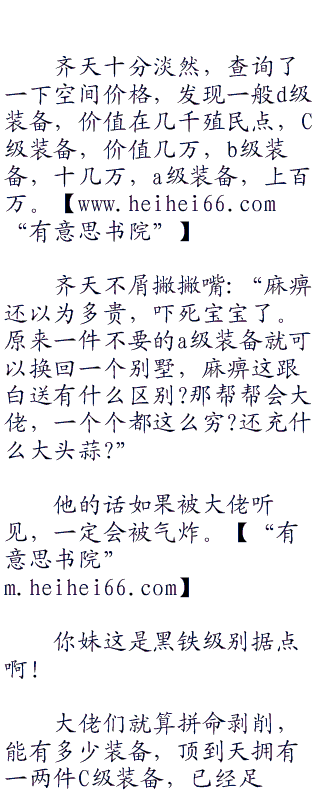 齐天十分淡然，查询了
一下空间价格，发现一般d级
装备，价值在几千殖民点，C
级装备，价值几万，b级装
备，十几万，a级装备，上百
万。【www.heihei66.com
“有意思书院”】
齐天不屑撇撇嘴：“麻痹
还以为多贵，吓死宝宝了。
原来一件不要的a级装备就可
以换回一个别墅，麻痹这跟
白送有什么区别?那帮帮会大
佬，一个个都这么穷?还充什
么大头蒜?”
他的话如果被大佬听
见，一定会被气炸。【“有
意思书院”
m.heihei66.com】
你妹这是黑铁级别据点
啊!
大佬们就算拼命剥削，
能有多少装备，顶到天拥有
一两件C级装备，已经足